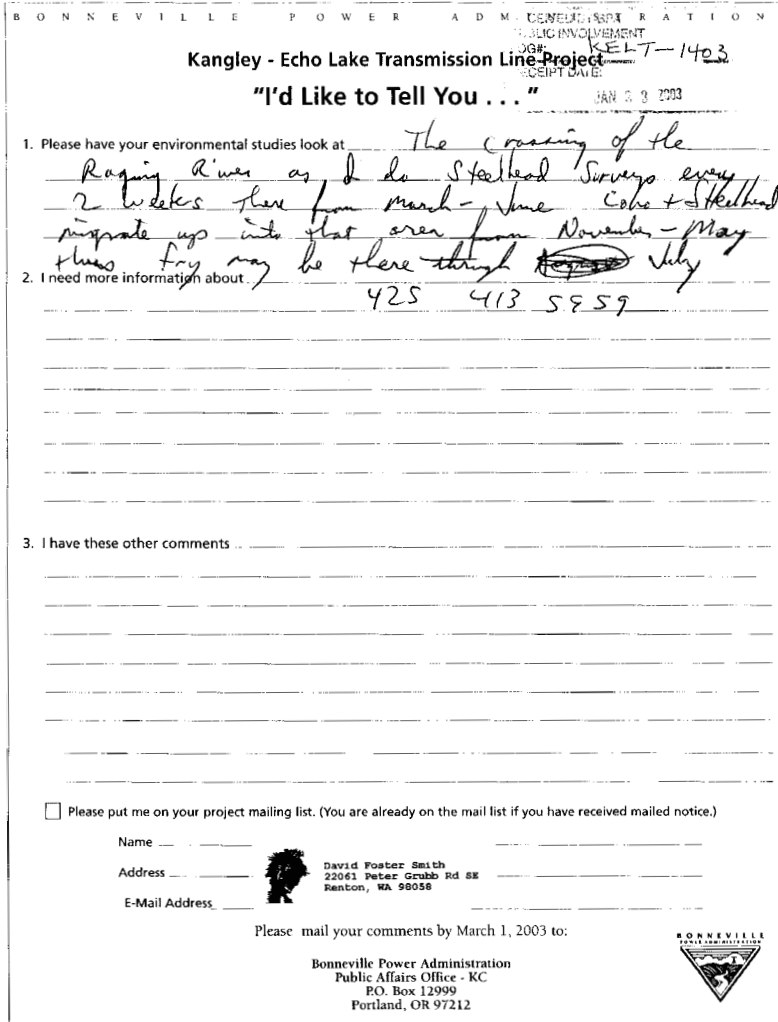 BONNEVILLE POWER ADMINISTRATION
RECEIVED BY BPA
PUBLIC INVOLVEMENT
LOG#: KELT-1403
RECEIPT DATE:
JAN 23 2003
Kangley - Echo Lake Transmission Line Project
"I'd Like to Tell You . . ."
1. Please have your environmental studies look at The crossing of the
Raging River as I do Steelhead Surveys every
2 weeks there from March - June Coho + Steelhead
migrate up into that area from November - May
thus fry may be there through July
2. I need more information about
425 413 5959
3. I have these other comments
Please put me on your project mailing list. (You are already on the mail list if you have received mailed notice.)
Name
Address
E-Mail Address
David Foster Smith
22061 Peter Grubb Rd SE
Renton, WA 98058
Please mail your comments by March 1, 2003 to:
Bonneville Power Administration
Public Affairs Office - KC
P.O. Box 12999
Portland, OR 97212
BONNEVILLE
POWER ADMINISTRATION